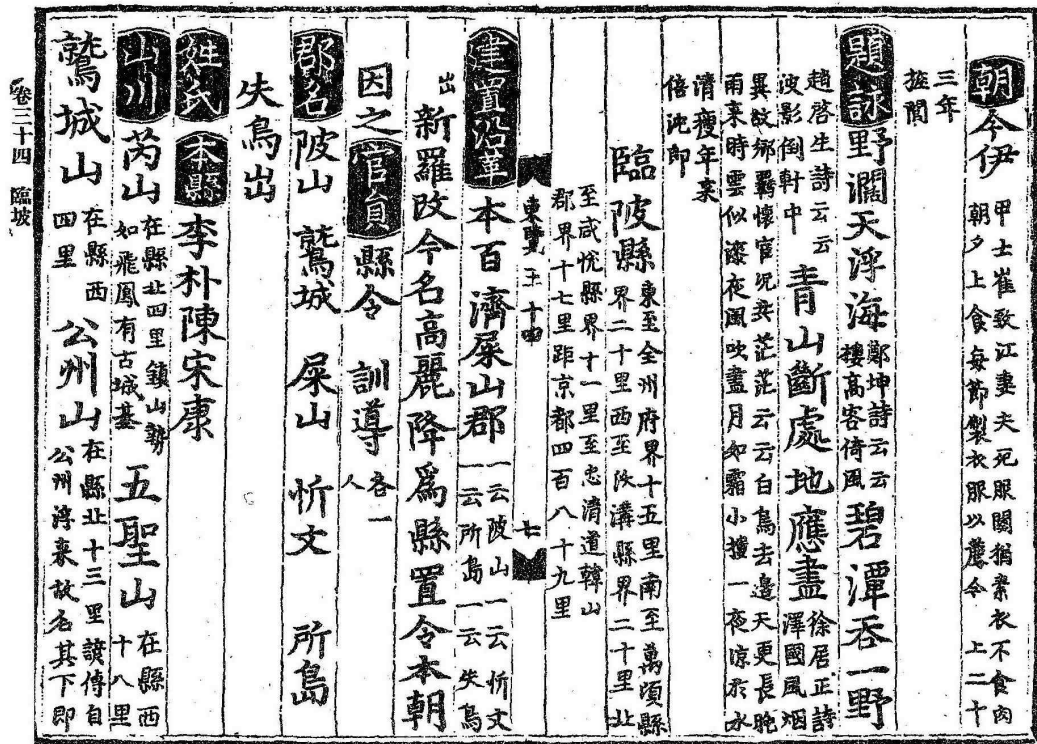 朝今伊甲士崔致江妻夫死服闋猶素衣不食肉
朝夕上食每節製衣服以薦今上二十
三年
㫌閭
題詠野濶天浮海鄭坤詩云云
樓高客倚風碧潭吞一野
趙啓生詩云云
波影倒軒中青山斷處地應盡徐居正詩
澤國風烟
異故鄉羇懷官況共茫茫云云白鳥去邊天更長晚
雨來時雲似漆夜風吹盡月如霜小樓一夜涼於水
清瘦年來
倍沈郎
臨陂縣東至全州府界十五里南至萬頃縣
界二十里西至沃溝縣界二十里北
至咸悅縣界十一里至忠淸道韓山
郡界十七里距京都四百八十九里
東覽三十四
七
建置沿革本百濟屎山郡一云陂山一云忻文
一云所島一云失烏
出新羅改今名高麗降爲縣置令本朝
因之官員縣令 訓導各一
人
郡名陂山 鷲城 屎山 忻文 所島
失烏出
姓氏本縣李朴陳宋康
山川芮山在縣北四里鎭山勢
如飛鳳有古城基五聖山在縣西
十八里
鷲城山在縣西
四里公州山在縣北十三里諺傳自
公州浮來故名其下卽
卷三十四 臨坡